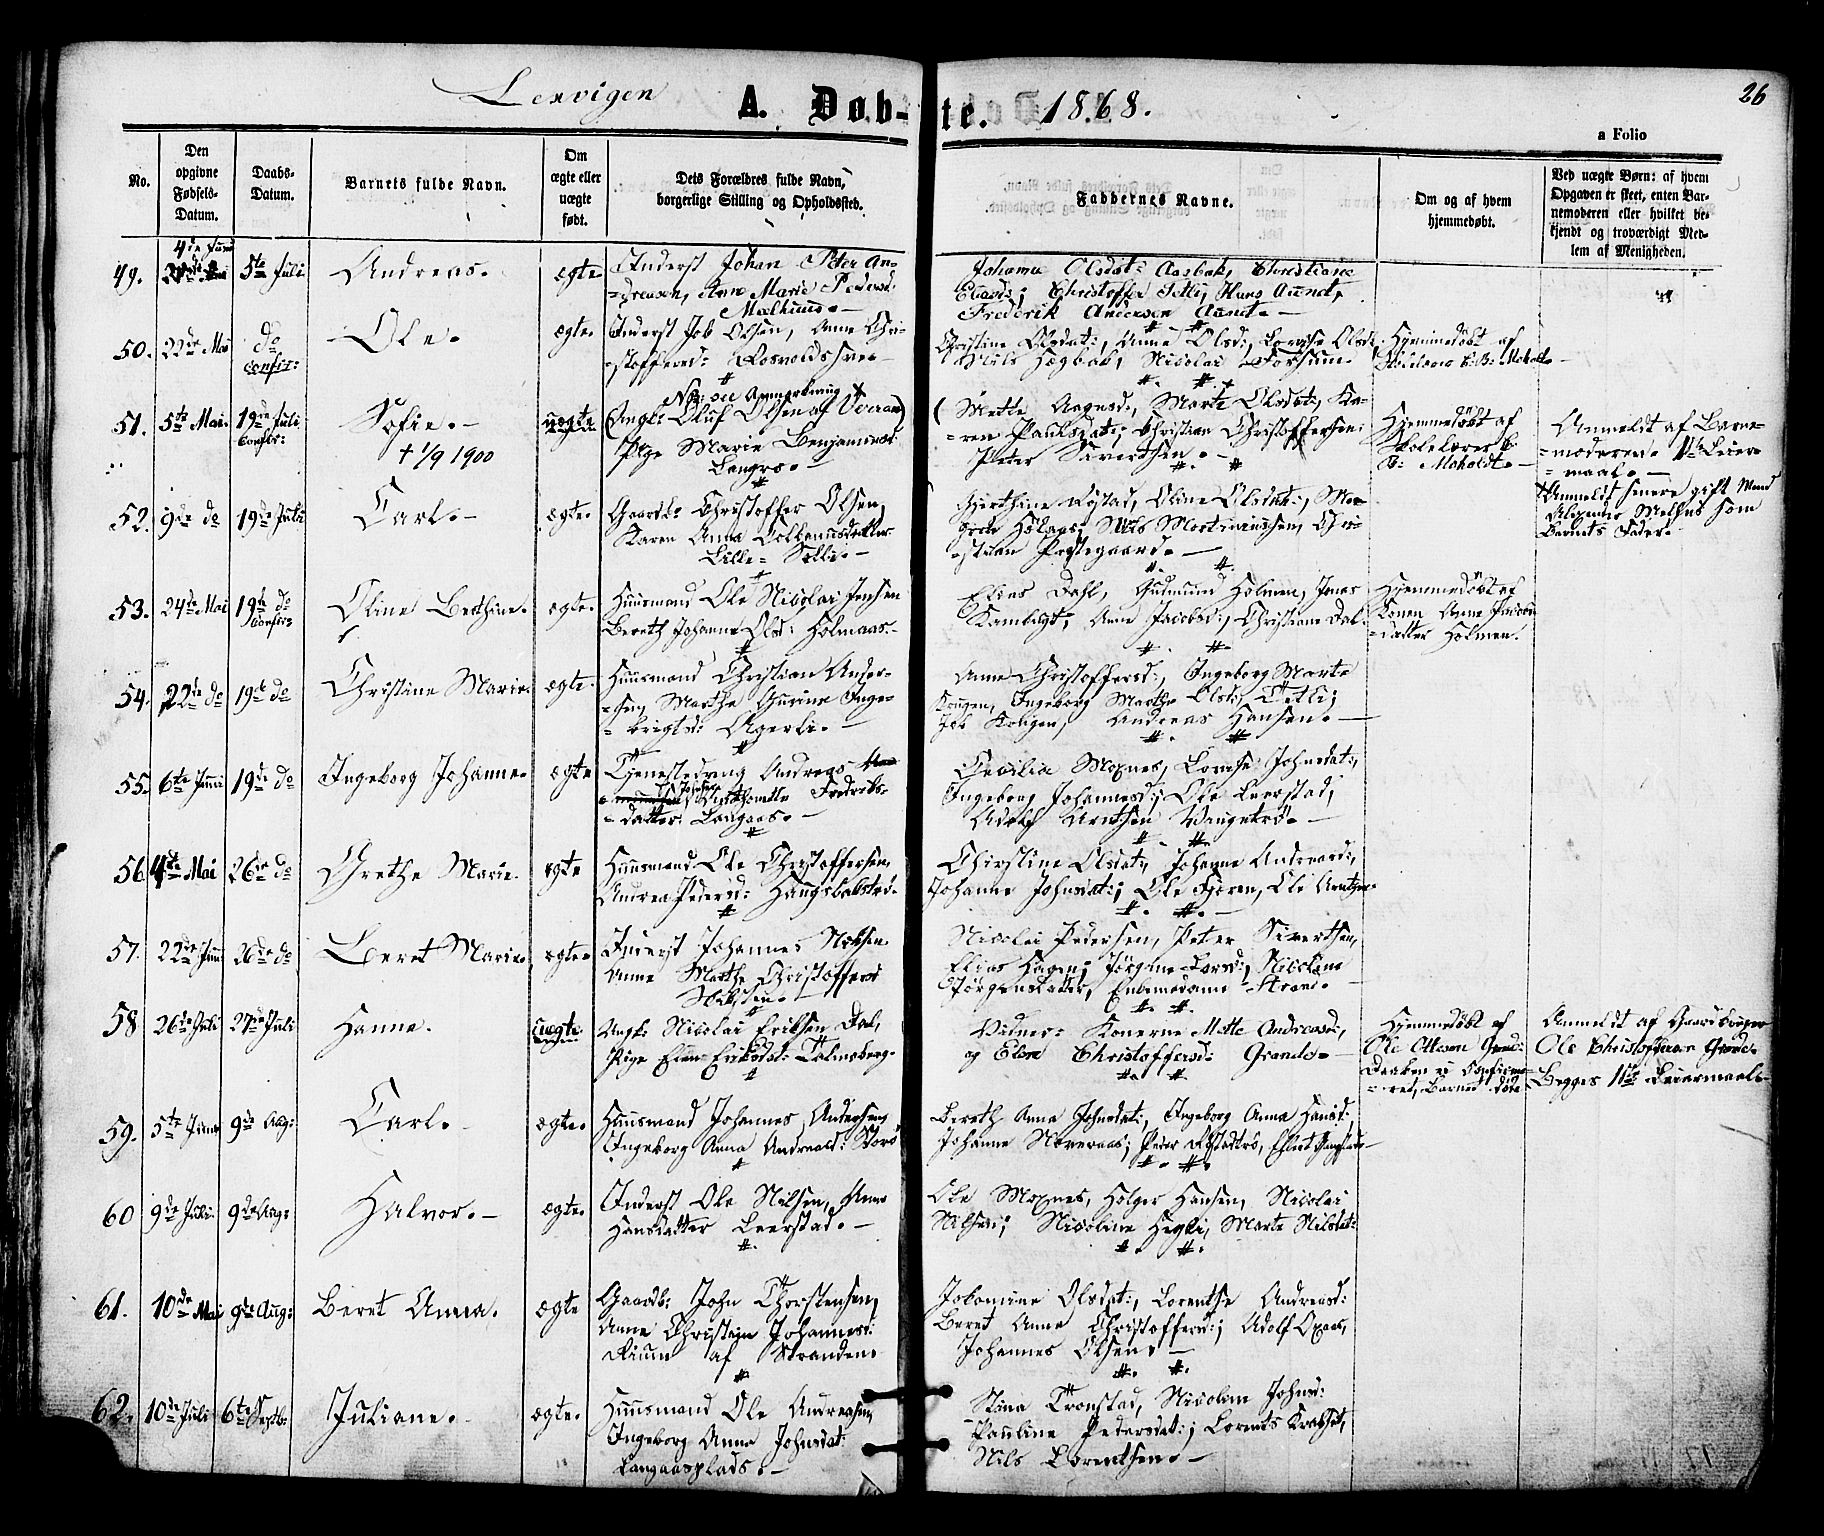 Lexvigen A. Døb-te. 1868. 26
a Folio
No.
Den opgivne Fødsels-Datum.
Daabs-Datum.
Barnets fulde Navn.
Om ægte eller uægte født.
Dets Forældres fulde Navn, borgerlige Stilling og Opholdssted.
Faddernes Navne.
Om og af hvem hjemmedøbt.
Ved uægte Børn: af hvem Opgaven er skeet, enten Barnemoderen eller hvilket bekjendt og troværdigt Medlem af Menigheden.
49. 4de Juni 5te Juli Andreas. ægte
Inderst Johan Peter An-
=dreasen, Ane Marie Pedersd:
Mælhuus.
Johanna Olsdat: Aasbak, Christiane
Eliasd:; Christoffer Selli, Hans Aunet,
Frederik Andersen Aunet.
50. 22de Mai do confir: Ole. ægte.
Inderst Job Olsen, Anne Chri-
=stoffersd: Rosvoldshvee
Christine Olsdat:, Anne Olsd:, Lovise Olsd:
Nils Hegbak, Nicolai Forsum.
Hjemmedøbt af
B: Moholt
51. 5te Mai. 19de Juli confir: Sofie. uægte
† 1/9 1900
(Ungk: Oluf Olsen af Verran)
Pige Marie Benjaminsd:
Langro.
Mette Aagesd:, Marte Olsdat:, Ka-
=ren Paulsdat:; Christian Christoffersen
Peter Sivertsen.
Hjemmedøbt af
Skolelærer
B: Moholdt.
Anmeldt af Barne-
=moderen. 1ste Leier-
=maal.
52. 9de do 19de Juli Carl. ægte.
Gaardb: Christoffer Olsen,
Karen Anna Tollennsdatter
Lille-Selli.
Gjertine Rystad, Oline Olsdat:, Mar-
grete Hölaas; Nils Mortinussen, Chri-
=stian Prestegaard.
Anmeldt senere gift Mand
Alexander Melhus som
Barnets Fader.
53. 24de Mai 19de do confir: Oline Berthine. ægte.
Huusmand Ole Nicolai Jensen
Bereth Johanna Olsd: Holmaas.
Elias Dahl, Gudmund Holmen, Jonas
Anne Jacobsd:, Christiane Dal.
Hjemmedöbt af
Konen Anne Jacobs-
=datter Holmen.
54. 22de do 19de do Christine Marie. ægte.
Huusmand Christian Ander-
=sen, Marthe Gurine Inge-
=brigtsd: Agerli.
Anne Christoffersd:, Ingeborg Marte
Kougen, Ingeborg Marthe Olsd: Selli;
Job Kougen, Andreas Hansen.
55. 6te Juni 19de do Ingeborg Johanne. ægte
Tjenestedreng Andreas
Josefsen, Fredriks-
=datter Langaas.
Cecilia Moxnes, Lovise Johnsdat:,
Ingeborg Johannesd:; Ole Leerstad,
Adolf Arntsen Vangstrø.
56. 4de Mai 26de do Grethe Marie. ægte
Huusmand Ole Christoffersen,
Andrea Pedersd: Haugsbakstrø.
Christine Olsdat:, Johanne Andreasd:,
Johanne Johnsdat:; Ole Fjæren, Ole Arntzen
57. 22de Juni 26de do Beret Marie. ægte
Inderst Johannes Nielsen
Anne Marthe Christoffersd
Nicolai Pedersen, Peter Sivertsen,
Elias Hagen; Jörgine Larsd:, Nicoline
Jörgensdatter, Enkemadame Strand.
58 26de Juli 27de Juli Hanna. uægte
Ungk: Nicolai Eriksen Dal,
Pige Eriksdat: Dalmsberg.
Vidner: Konerne Mette Andreasd:,
og Elen Christoffersd: Grande
Hjemmedöbt af
Ole Ottesen Grande:
Daaben ei confirme-
=ret, Barnet döde
Anmeldt af Gaardbruger
Ole Christoffersen Grande
Begges 1ste Leiermaal
59. 5te Juni 9de Aug: Carl. ægte.
Huusmand Johannes Andersen,
Ingeborg Anna Andreasd: Storø
Bereth Anna Johnsdat:, Ingeborg Anna Hansd:
Johanne Norveraas; Peder Rostadtrø,
60 9de Juli 9de Aug: Halvor. ægte.
Inderst Ole Nilsen, Anne
Hansdatter Leerstad.
Ole Moxnes, Holger Hansen, Nicolai
Nilsen; Nicoline Hegli, Marte Nilsdat:
61. 10de Mai 9de Aug: Beret Anna. ægte
Gaardb: John Thorstensen,
Anne Christine Johannesd:
Rium af Stranden
Jobomine Olsdat:, Lorentse Andreasd:
Beret Anne Christoffersd:; Adolf Oxaas,
Johannes Olsen.
62. 10de Juli 6te Septb: Juliane. ægte.
Huusmand Ole Andreasen,
Ingeborg Anna Johnsdat:
Langaasplads.
Stina Tronstad, Nicoline Johnsd:
Pauline Pedersdat:; Lorents Krabset,
Nils Lorentsen.